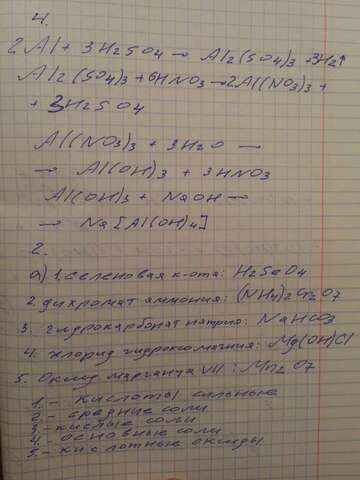 4.
2Al + 3H2SO4 → Al2(SO4)3 + 3H2↑
Al2(SO4)3 + 6HNO3 → 2Al(NO3)3 +
+ 3H2SO4
Al(NO3)3 + 3H2O →
→ Al(OH)3 + 3HNO3
Al(OH)3 + NaOH →
→ Na[Al(OH)4]
2.
а) 1. селеновая к-ота: H2SeO4
2 дихромат аммония: (NH4)2Cr2O7
3. гидрокарбонат натрия: NaHCO3
4. хлорид гидроксомагния: Mg(OH)Cl
5. Оксид марганца VII: Mn2O7
1. - кислота сильные
2 - средние соли
3. - кислые соли
4. - основные соли
5. - кислотные оксиды